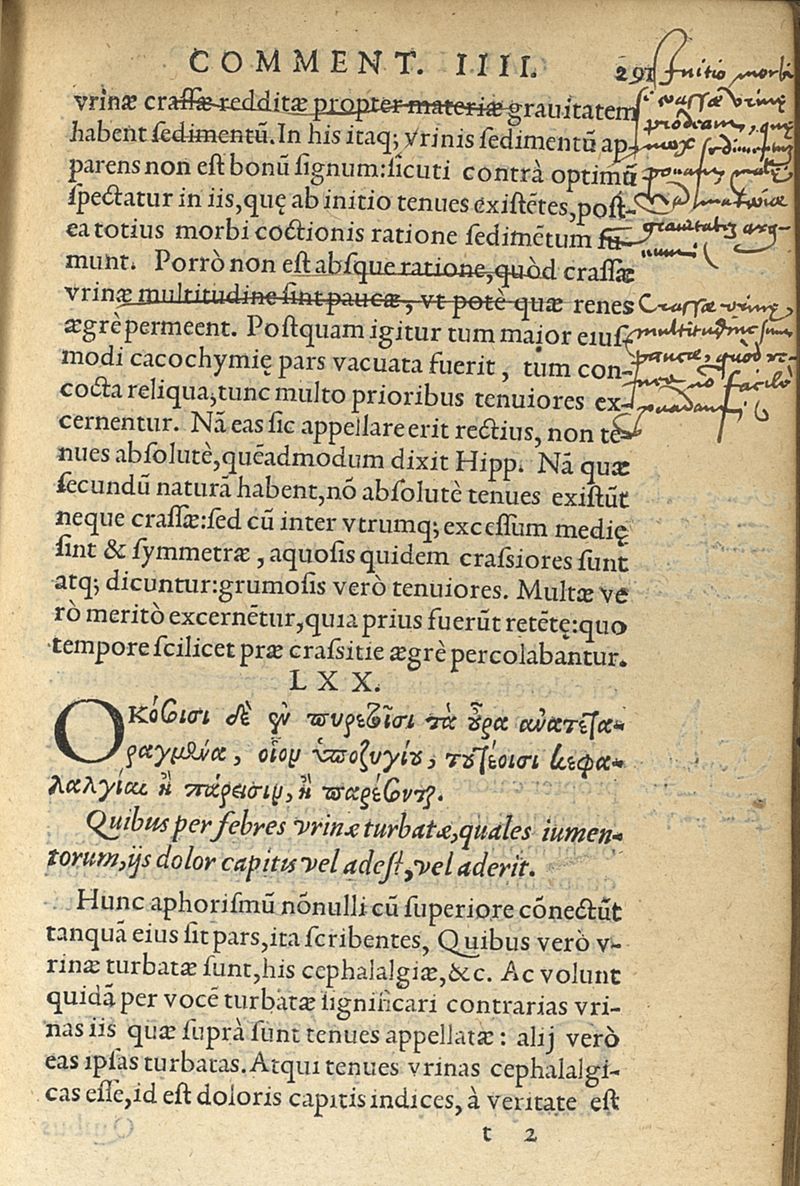 COMMENT. IIII. 291
vrinæ crassæ redditæ propter materiæ grauitatem
habent sedimentū. In his itaq; vrinis sedimentū ap-
parens non est bonū signum: sicuti contrà optimū
spectatur in iis, quę ab initio tenues existētes, post-
ea totius morbi coctionis ratione sedimētum su-
munt. Porrò non est absque ratione, quòd crassæ
vrinæ multitudine sint paucæ, vt potè quæ renes
ægrè permeent. Postquam igitur tum maior eius-
modi cacochymię pars vacuata fuerit, tum con-
cocta reliqua, tunc multo prioribus tenuiores ex-
cernentur. Nā eas sic appellare erit rectius, non te-
nues absolutè, quēadmodum dixit Hipp. Nā quæ
secundū naturā habent, nō absolutè tenues existūt
neque crassæ: sed cū inter vtrumq; excessum medię
sint & symmetræ, aquosis quidem crassiores sunt
atq; dicuntur: grumosis verò tenuiores. Multæ ve
rò meritò excernētur, quia prius fuerūt retētę: quo
tempore scilicet præ crassitie ægrè percolabantur.
LXX.
Οκόσισι δὲ ἐν πυρετοῖσι τὰ οὖρα ἀνατετα-
ραγμένα, οἷον ὑποζυγίου, τουτέοισι κεφα-
λαλγίαι ἢ πάρεισιν, ἢ παρέσονται.
Quibus per febres vrinæ turbatæ, quales iumen-
torum, ijs dolor capitis vel adest, vel aderit.
Hunc aphorismū nōnulli cū superiore cōnectūt
tanquā eius sit pars, ita scribentes, Quibus verò v-
rinæ turbatæ sunt, his cephalalgiæ, &c. Ac volunt
quidā per vocē turbatæ significari contrarias vri-
nas iis quæ suprà sunt tenues appellatæ: alij verò
eas ipsas turbatas. Atqui tenues vrinas cephalalgi-
cas esse, id est doloris capitis indices, à veritate est
t 2
Initio morbi
si crassæ vrinę
prodeant, quę
mox sedimentum
ponant, malę
materiæ
grauitatis arg-
Crassæ vrinę,
multitudine sunt
paucæ, quòd re-
nes nō facilè